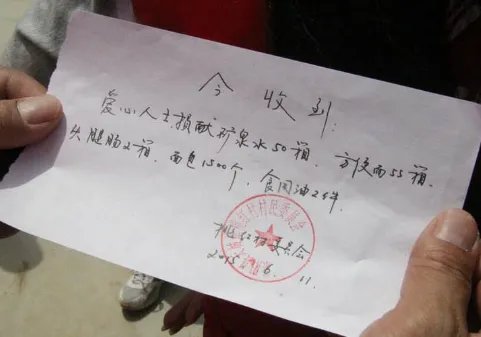 今收到:
爱心人士捐献矿泉水50箱、方便面55箱、
火腿肠2箱、面包1500个、食用油2件.
桃红村委员会
2015.6.11.
村村民委员会